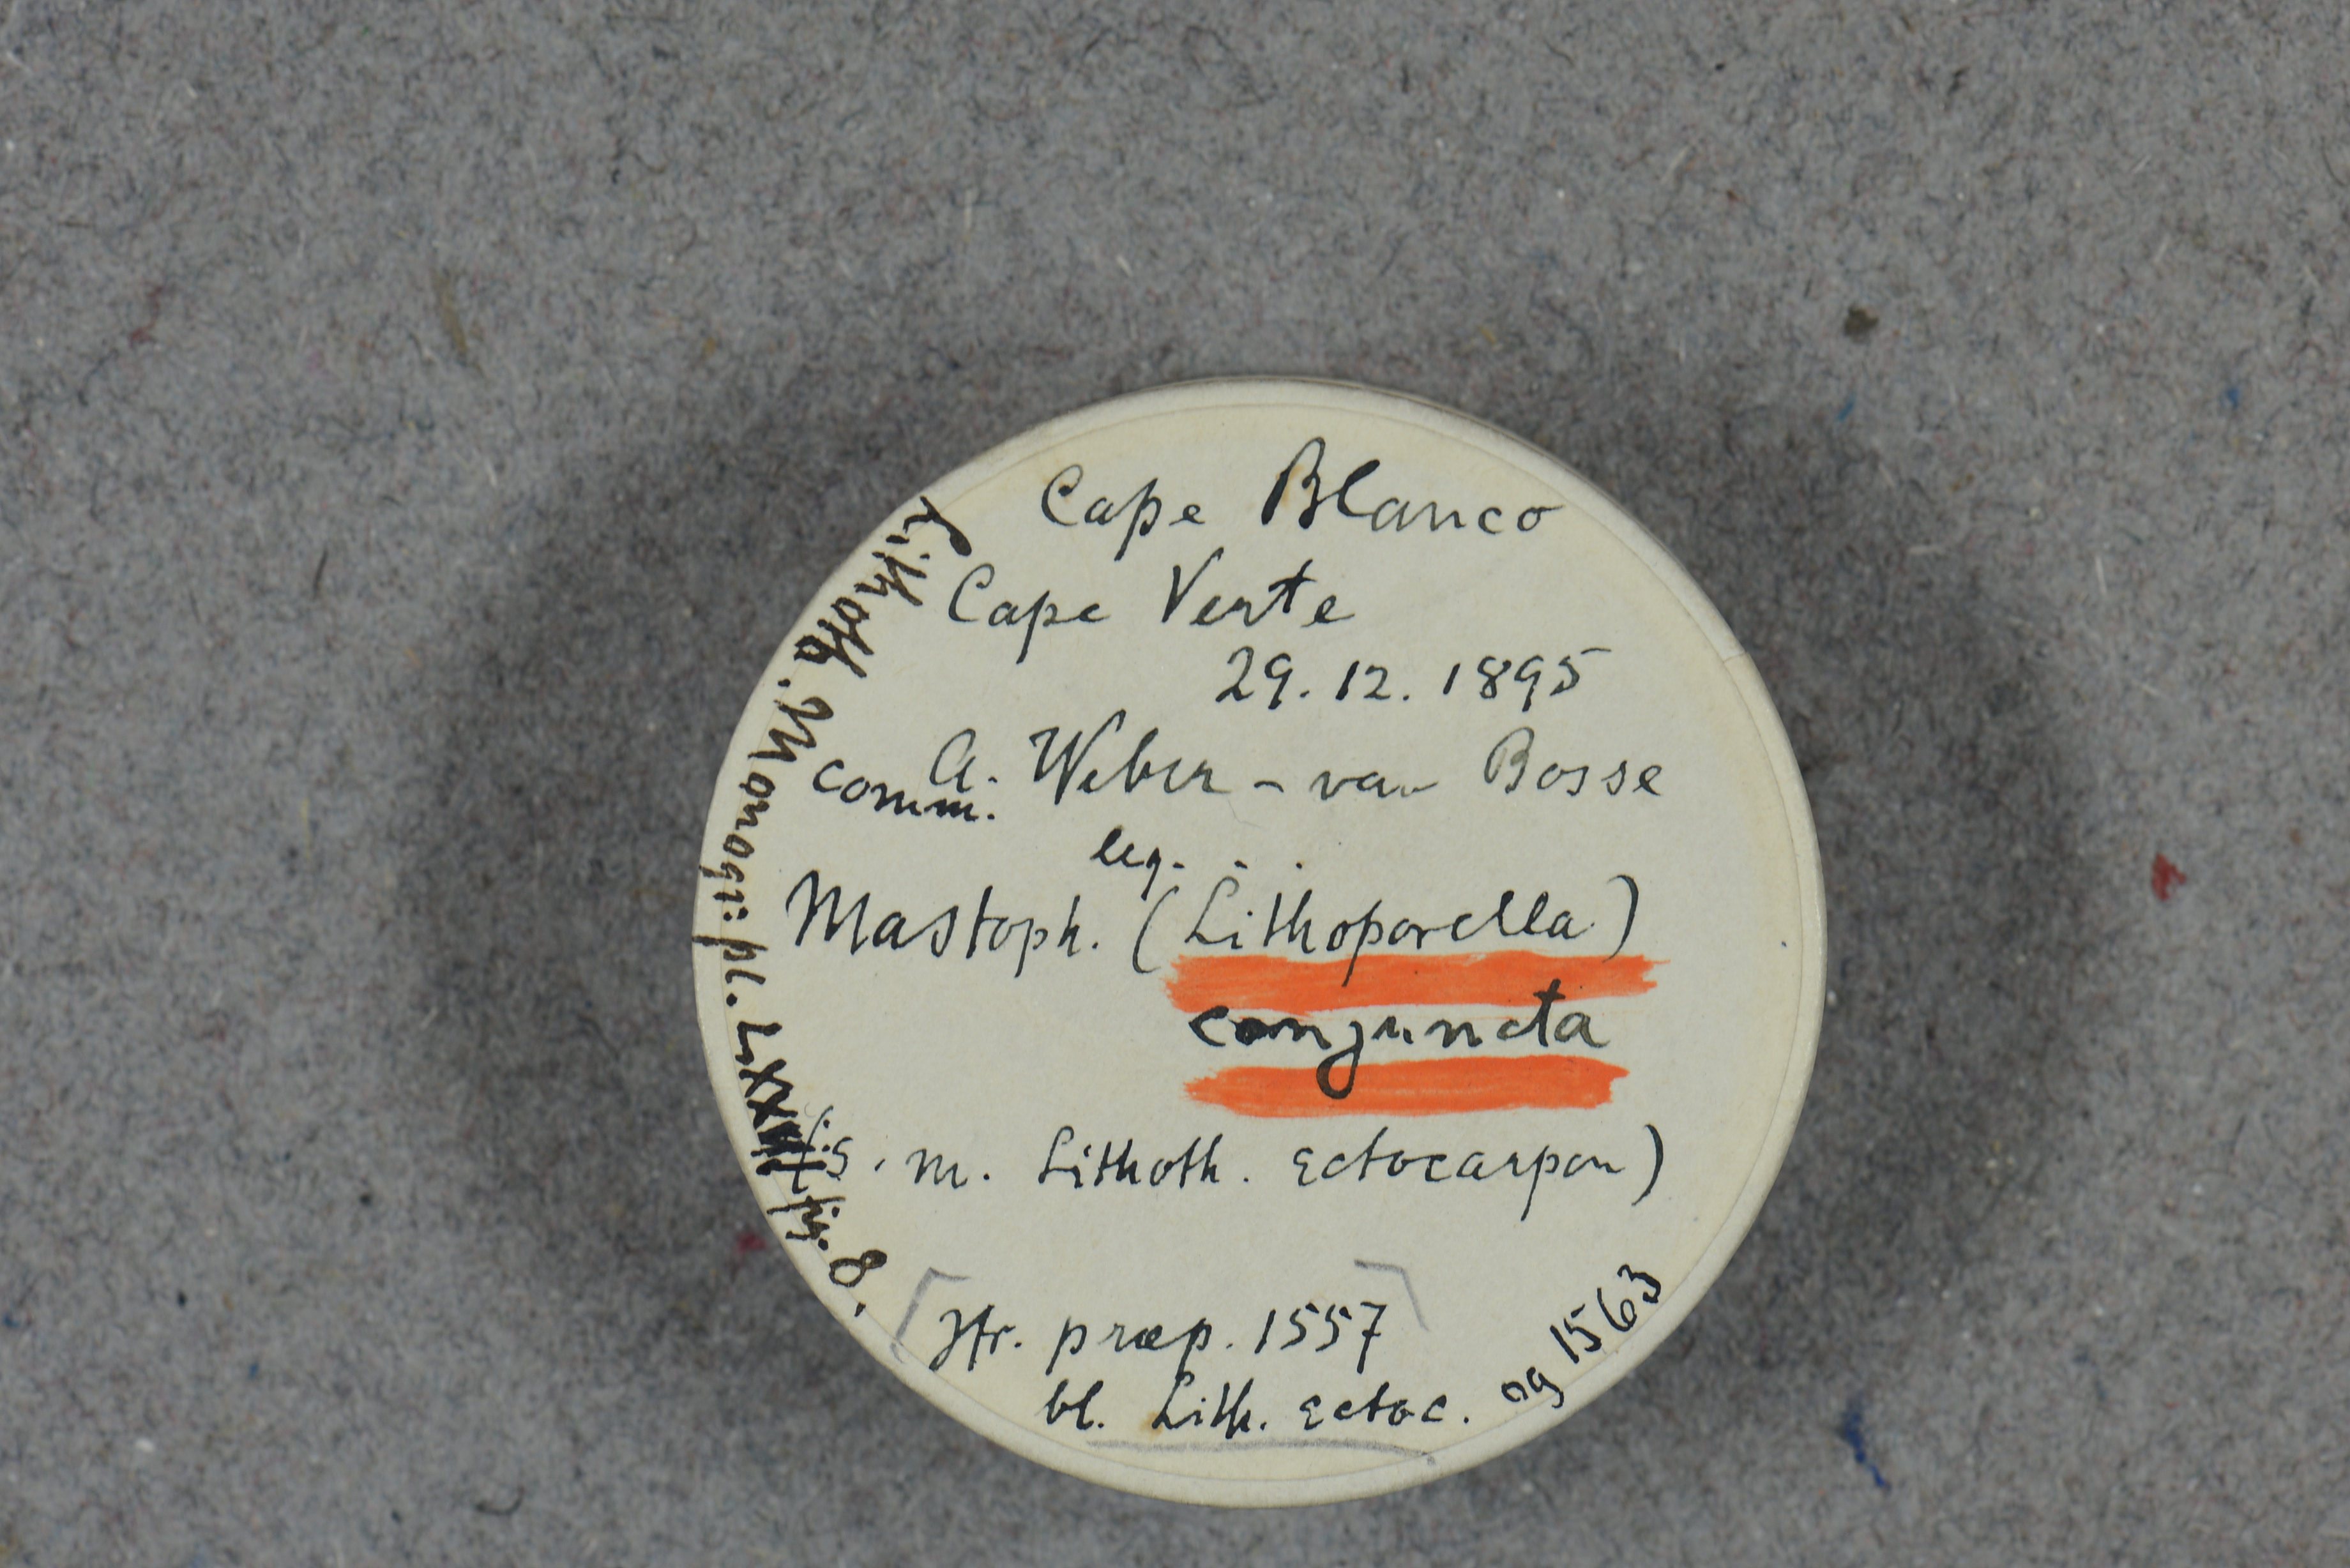 Cape Blanco
Cape Verte
29.12.1895
comm. A. Weber - van Bosse
leg. . .
Mastoph. (Lithoporella)
conjuncta
(s. m. Lithoth. Ectocarpon)
Jfr. præp. 1557 og 1563
bl. Lith. Ectoc.
Lithoth. Monogr. pl. fig. 8.